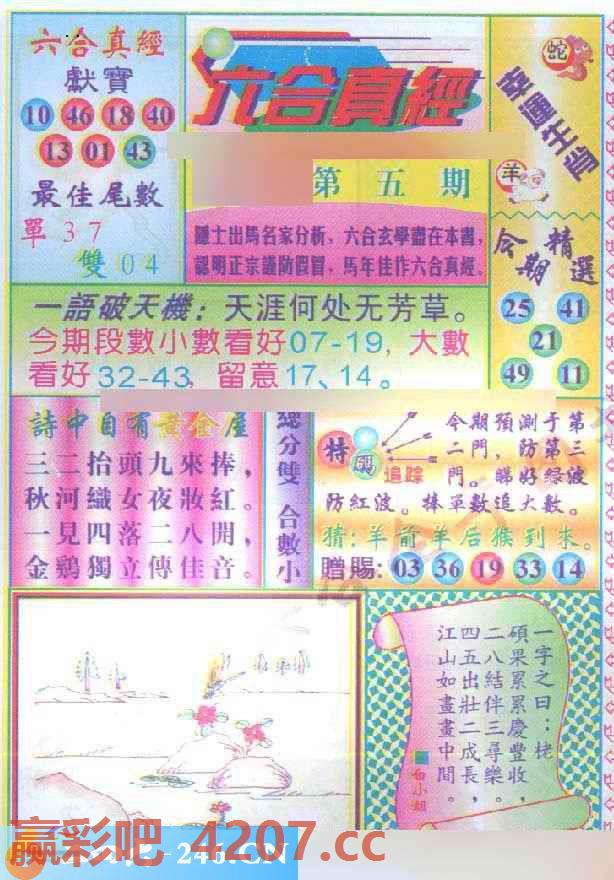 六合真經
獻寶
10 46 18 40
13 01 43
最佳尾數
單37
雙04
六合真經
第五期
隱士出馬名家分析，六合玄學盡在本書，
認明正宗謹防假冒，馬年佳作六合真經。
蛇
幸運生肖
羊
今期精選
25 41
21
49 11
一語破天機：天涯何处无芳草。
今期段數小數看好07-19，大數
看好32-43，留意17、14。
詩中自有黃金屋
三二抬頭九來捧，
秋河織女夜妝紅。
一見四落二八開，
金鷄獨立傳佳音。
總分雙 合數小
特碼
追踪
今期預測于第
二門，防第三
門。睇好緑波
防紅波。捧單數追大數。
猜：羊前羊后猴到来。
贈賜：03 36 19 33 14
一字之曰：栳
碩果累累慶豐收，
二八結伴三尋樂。
四五出壯二成長，
江山如畫畫中間。
白小姐
赢彩吧 4207.cc
-246.CN